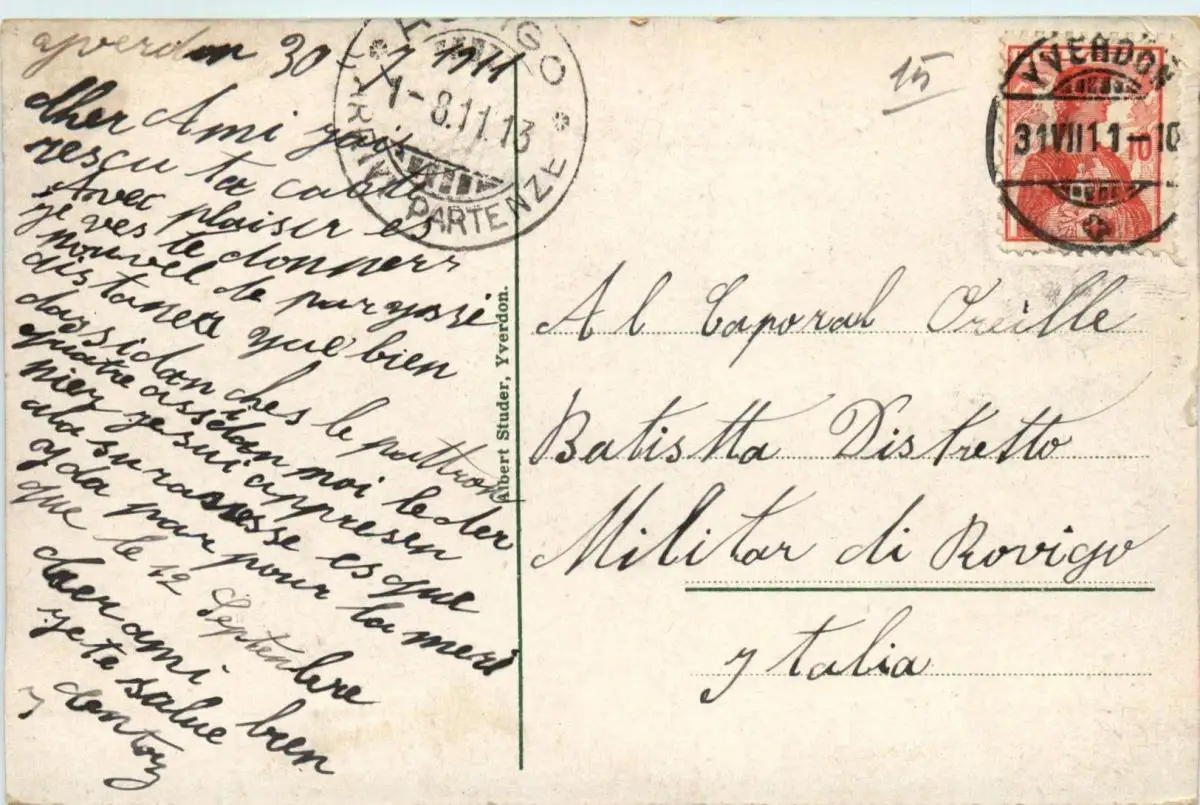 yverdon 30 7 1911
cher Ami jais
resçu ta carte
Avec plaisir es
je ves te donnerr
nouvel de parysse
distanete que bien
dassidan ches le pattron
quatre assidan moi le der
nier je sui appresen
ala su rasesse es que
yda par pour la meri
que le 12 Septembre
cher ami
je te salue bien
ROVIGO
1-8.11.13
ARRIVI PARTENZE
Albert Studer, Yverdon.
15
YVERDON
31 VII 11-10
10
Al Caporal Oreille
Batistta Distretto
Militar di Rovigo
ytalia